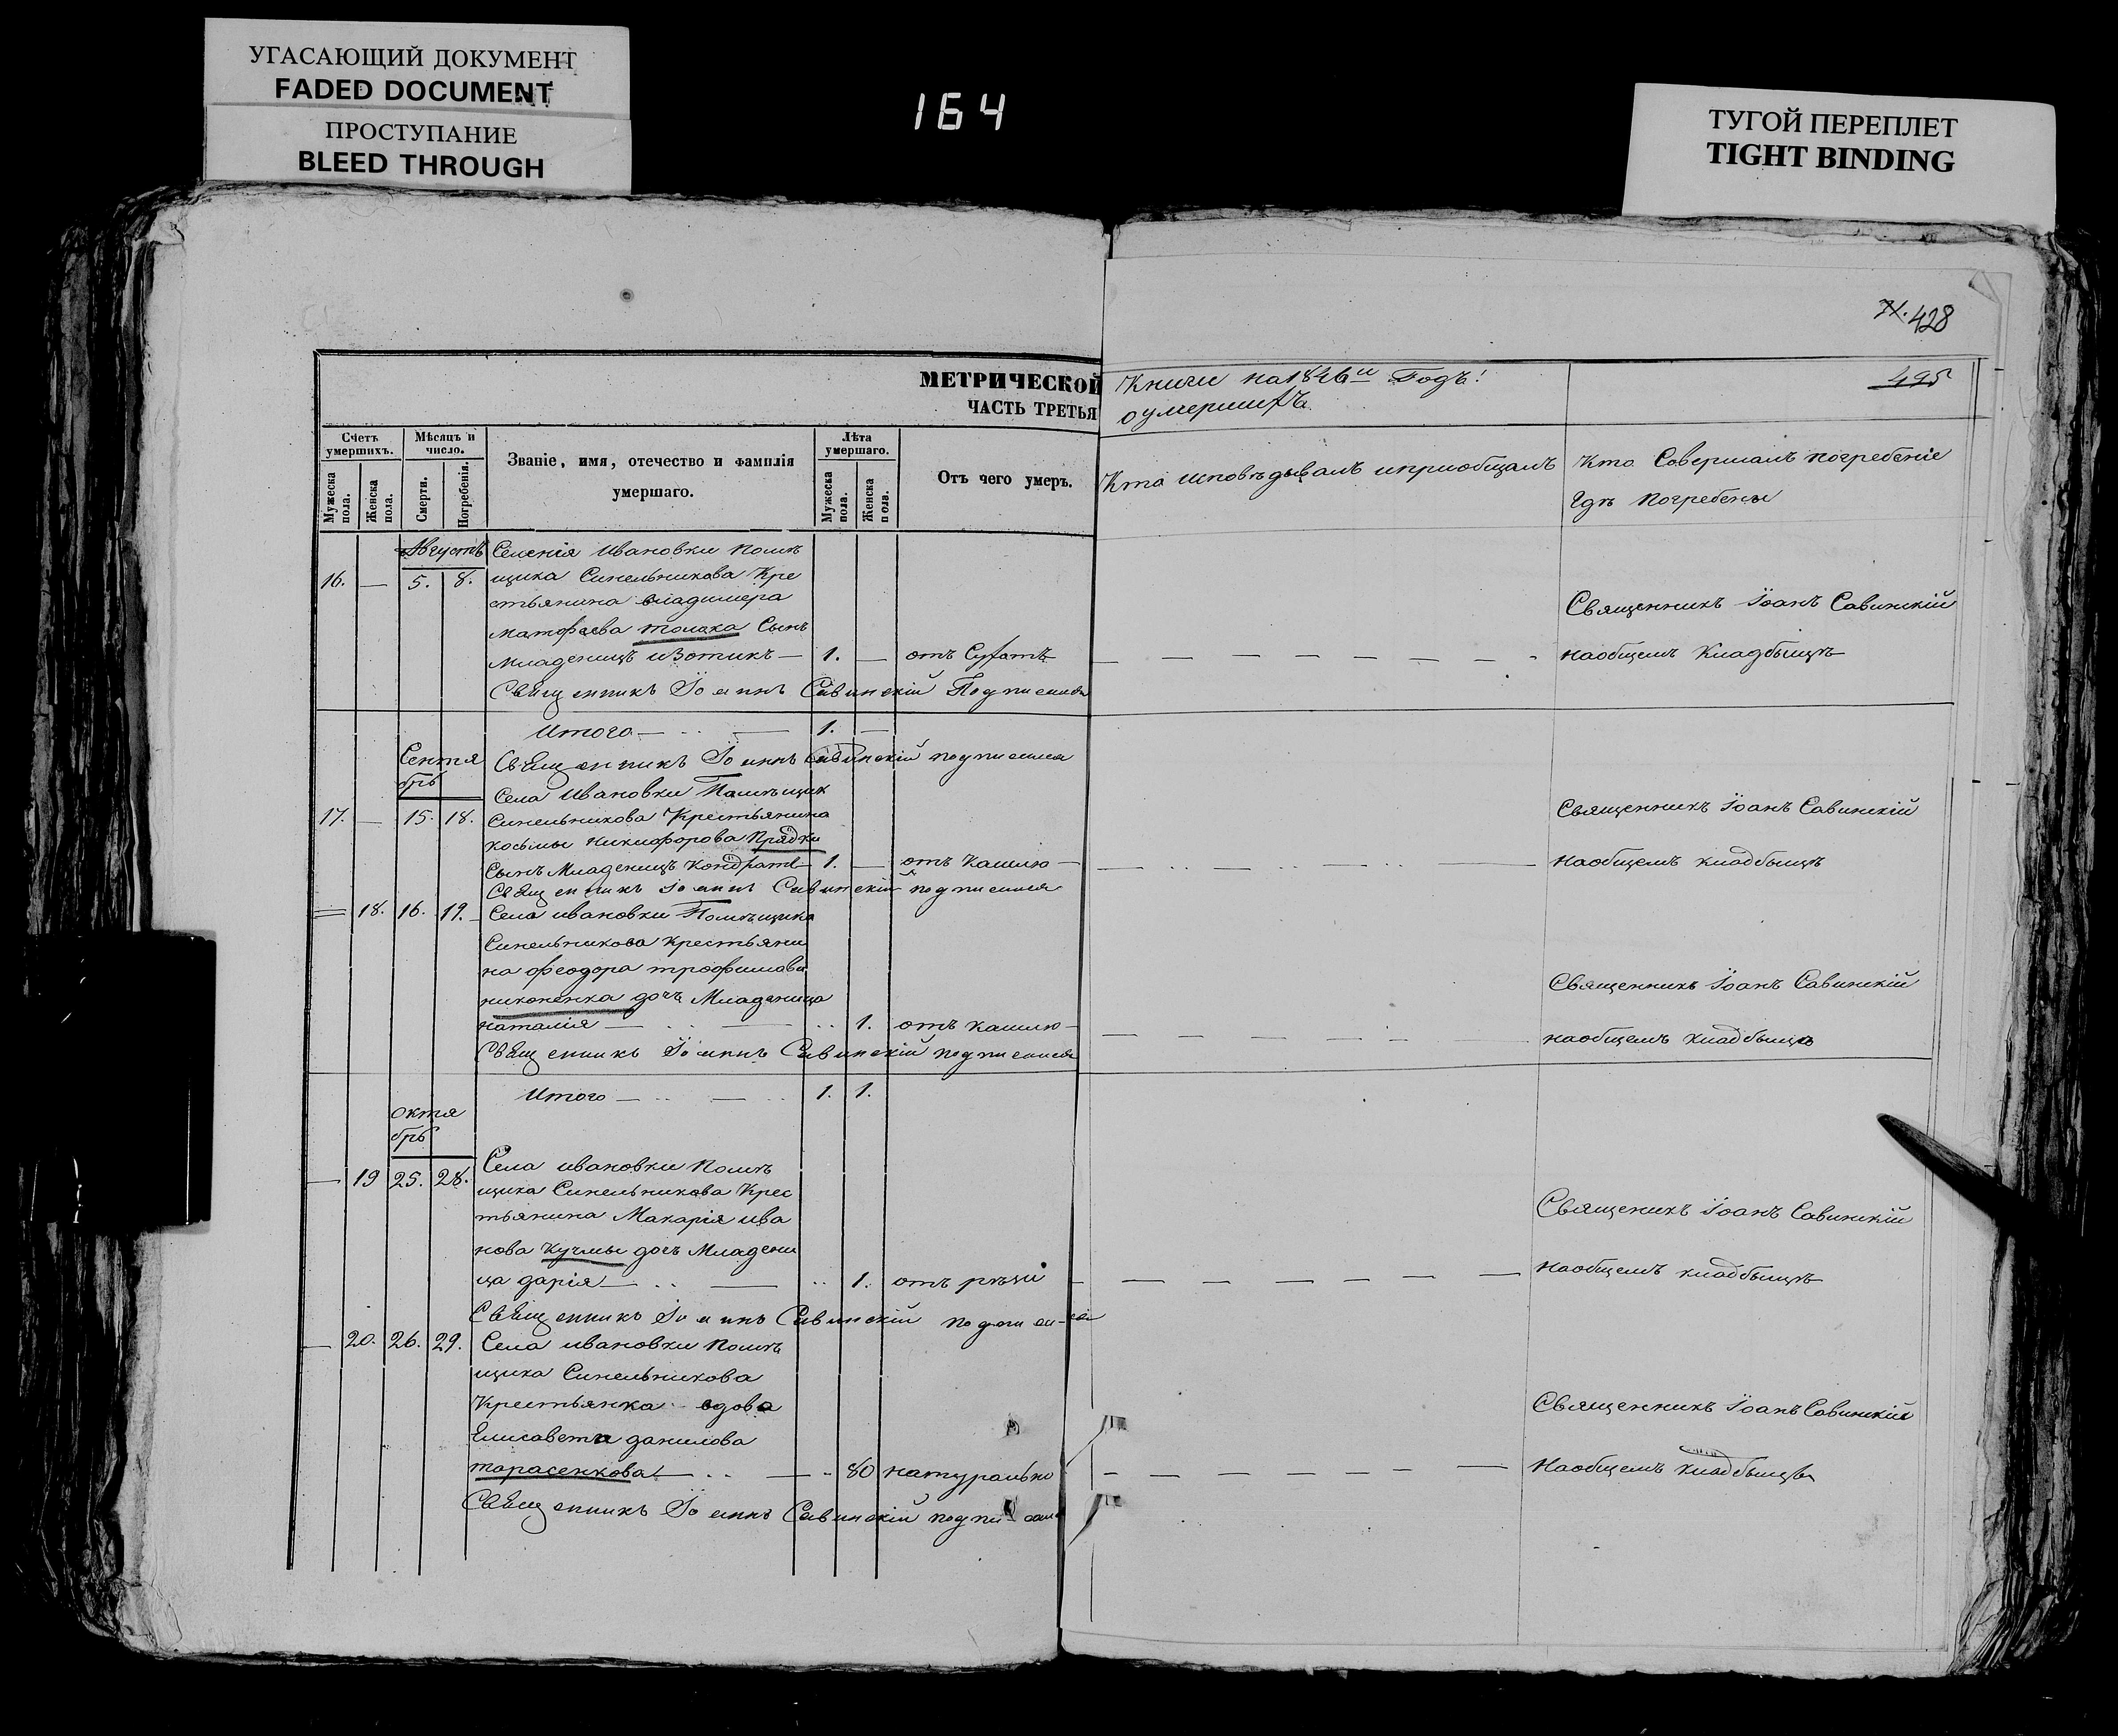 УГАСАЮЩИЙ ДОКУМЕНТ
FADED DOCUMENT
ПРОСТУПАНИЕ
BLEED THROUGH
164
ТУГОЙ ПЕРЕПЛЕТ
TIGHT BINDING
428
495
МЕТРИЧЕСКОЙ Книги на 1846й Годъ!
ЧАСТЬ ТРЕТЬЯ оумершихъ
Счетъ умершихъ.
Мужеска пола.
Женска пола.
Мѣсяцъ и число.
Смерти.
Погребенія.
Званіе, имя, отечество и фамилія
умершаго.
Лѣта умершаго.
Мужеска пола.
Женска пола.
Отъ чего умеръ.
Кто исповѣдывалъ ипріобщалъ
Кто Совершалъ погребеніе
Гдѣ погребены
Августъ Селенія Ивановки помѣ
16. — 5. 8. щика Синельникова Кре
стьянина владимера
матфѣева толока Сынъ
младенецъ изотикъ — 1. — отъ Сухотъ
Священникъ Іоаннъ Савинскій Подписался
Священникъ Іоанъ Савинскій
наобщемъ Кладбыщѣ
Итого — 1. —
Сентя Священникъ Іоаннъ Савинскій подписался
брь
Села Ивановки Помѣщик
17. — 15. 18. Синельникова Крестьянина
косьмы никифорова Прядки
Сынъ Младенецъ Кондратъ 1. — отъ Кашлю —
Священникъ Іоаннъ Савинскій подписался
Священникъ Іоанъ Савинскій
наобщемъ кладбыщѣ
18. 16. 19. Села ивановки Помѣщика
Синельникова крестьяни
на феодора трофимова
никоненка дочь Младеница
наталія — 1. отъ кашлю —
Священникъ Іоаннъ Савинскій подписался
Священникъ Іоанъ Савинскій
наобщемъ кладбыщѣ
Итого — 1. 1.
октя
брь
Села ивановки помѣ
— 19 25. 28. щика Синельникова Крес
тьянина Макарія ива
нова Кучмы дочь Младени
ца дарія — 1. отъ рѣзи
Священникъ Іоаннъ Савинскій подписался
Священикъ Іоанъ Савинскій
наобщемъ кладбыщѣ
— 20. 26. 29. Села ивановки помѣ
щика Синельникова
Крестьянка вдова
Елисавета данилова
тарасенкова — 80 натурально
Священникъ Іоаннъ Савинскій подписался
Священникъ Іоанъ Савинскій
наобщемъ кладбыщѣ